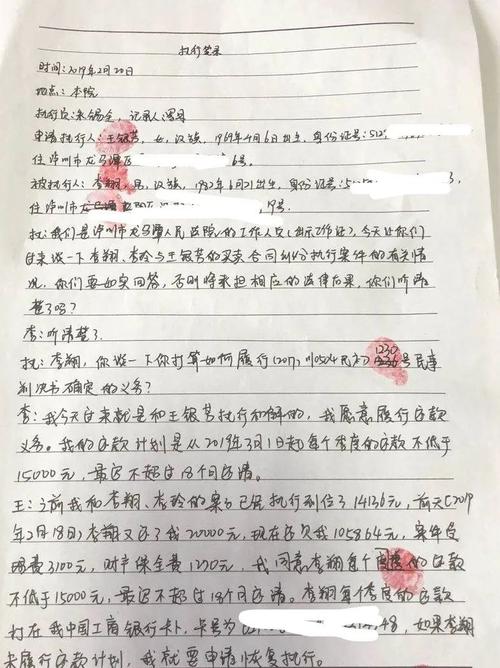 执行笔录
时间:2019年2月20日
地点:本院
执行员:朱锡全,记录人:
申请执行人:王银芳,女,汉族,1969年4月6日出生,身份证号:512
住泸州市龙马潭区 6号。
被执行人:李翔,男,汉族,1982年6月21出生,身份证号:5 3,
住泸州市龙马潭区 ,19号。
执:我们是泸州市龙马潭人民法院的工作人员(出示工作证),今天让你们
过来谈一下李翔、李玲与王银芳的买卖合同纠纷执行案件的有关情
况,你们要如实回答,否则将承担相应的法律后果,你们听清
楚了吗?
李:听清楚了.
执:李翔,你谈一下你打算如何履行(2017)川0504民初1230号民事
判决书确定的义务?
李:我今天过来就是和王银芳执行和解的,我愿意履行还款
义务。我的还款计划是从2019年3月1日起每个季度的还款不低于
15000元,最迟不超过18个月还清。
王:之前我和李翔、李玲的案子已经执行到位了14136元,前天(2019
年2月18日)李翔又还了我20000元,现在还欠我105864元,案件受
理费3100元,财产保全费1270元,我同意李翔每个季度的还款
不低于15000元,最迟不超过18个月还清。李翔每个季度的还款
打在我中国工商银行卡上,卡号为62 48,如果李翔
未履行还款计划,我就要申请恢复执行。